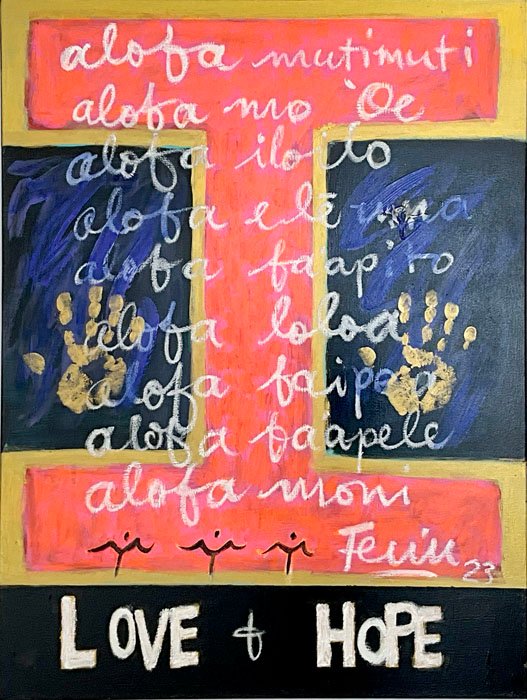 alofa mutimuti
alofa mo 'Oe
alofa iloilo
alofa elē uma
alofa faapito
alofa loloa
alofa faipea
alofa faapele
alofa moni
23
LOVE & HOPE